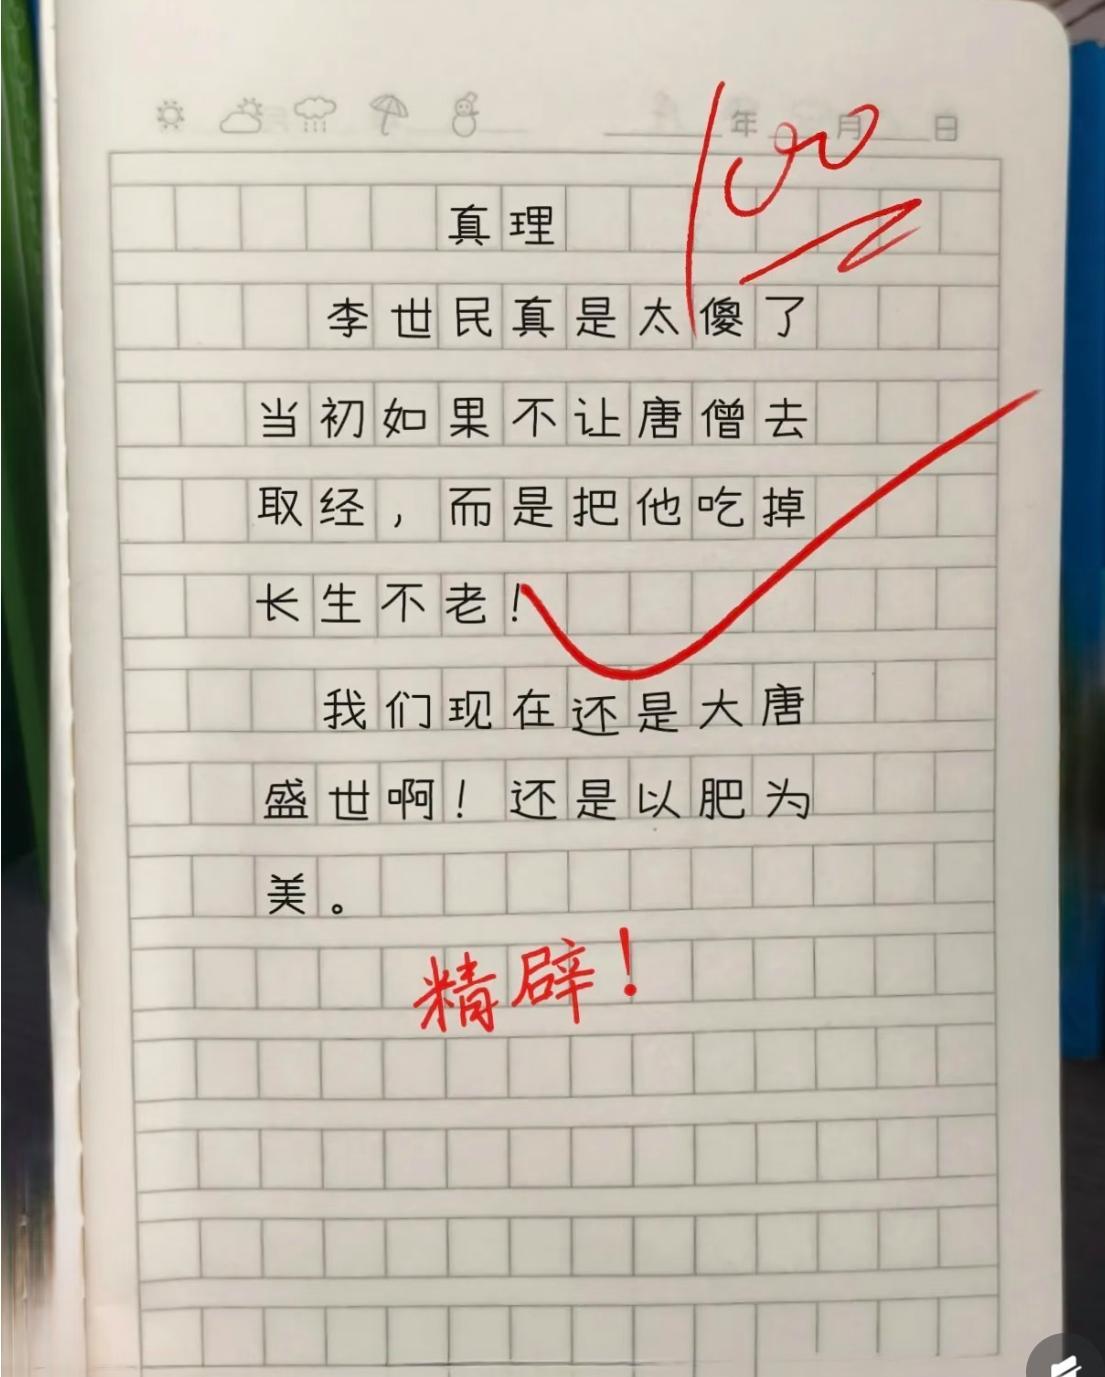 年 月 日
100
真理
李世民真是太傻了
当初如果不让唐僧去
取经，而是把他吃掉
长生不老！
我们现在还是大唐
盛世啊！还是以肥为
美。
精辟！